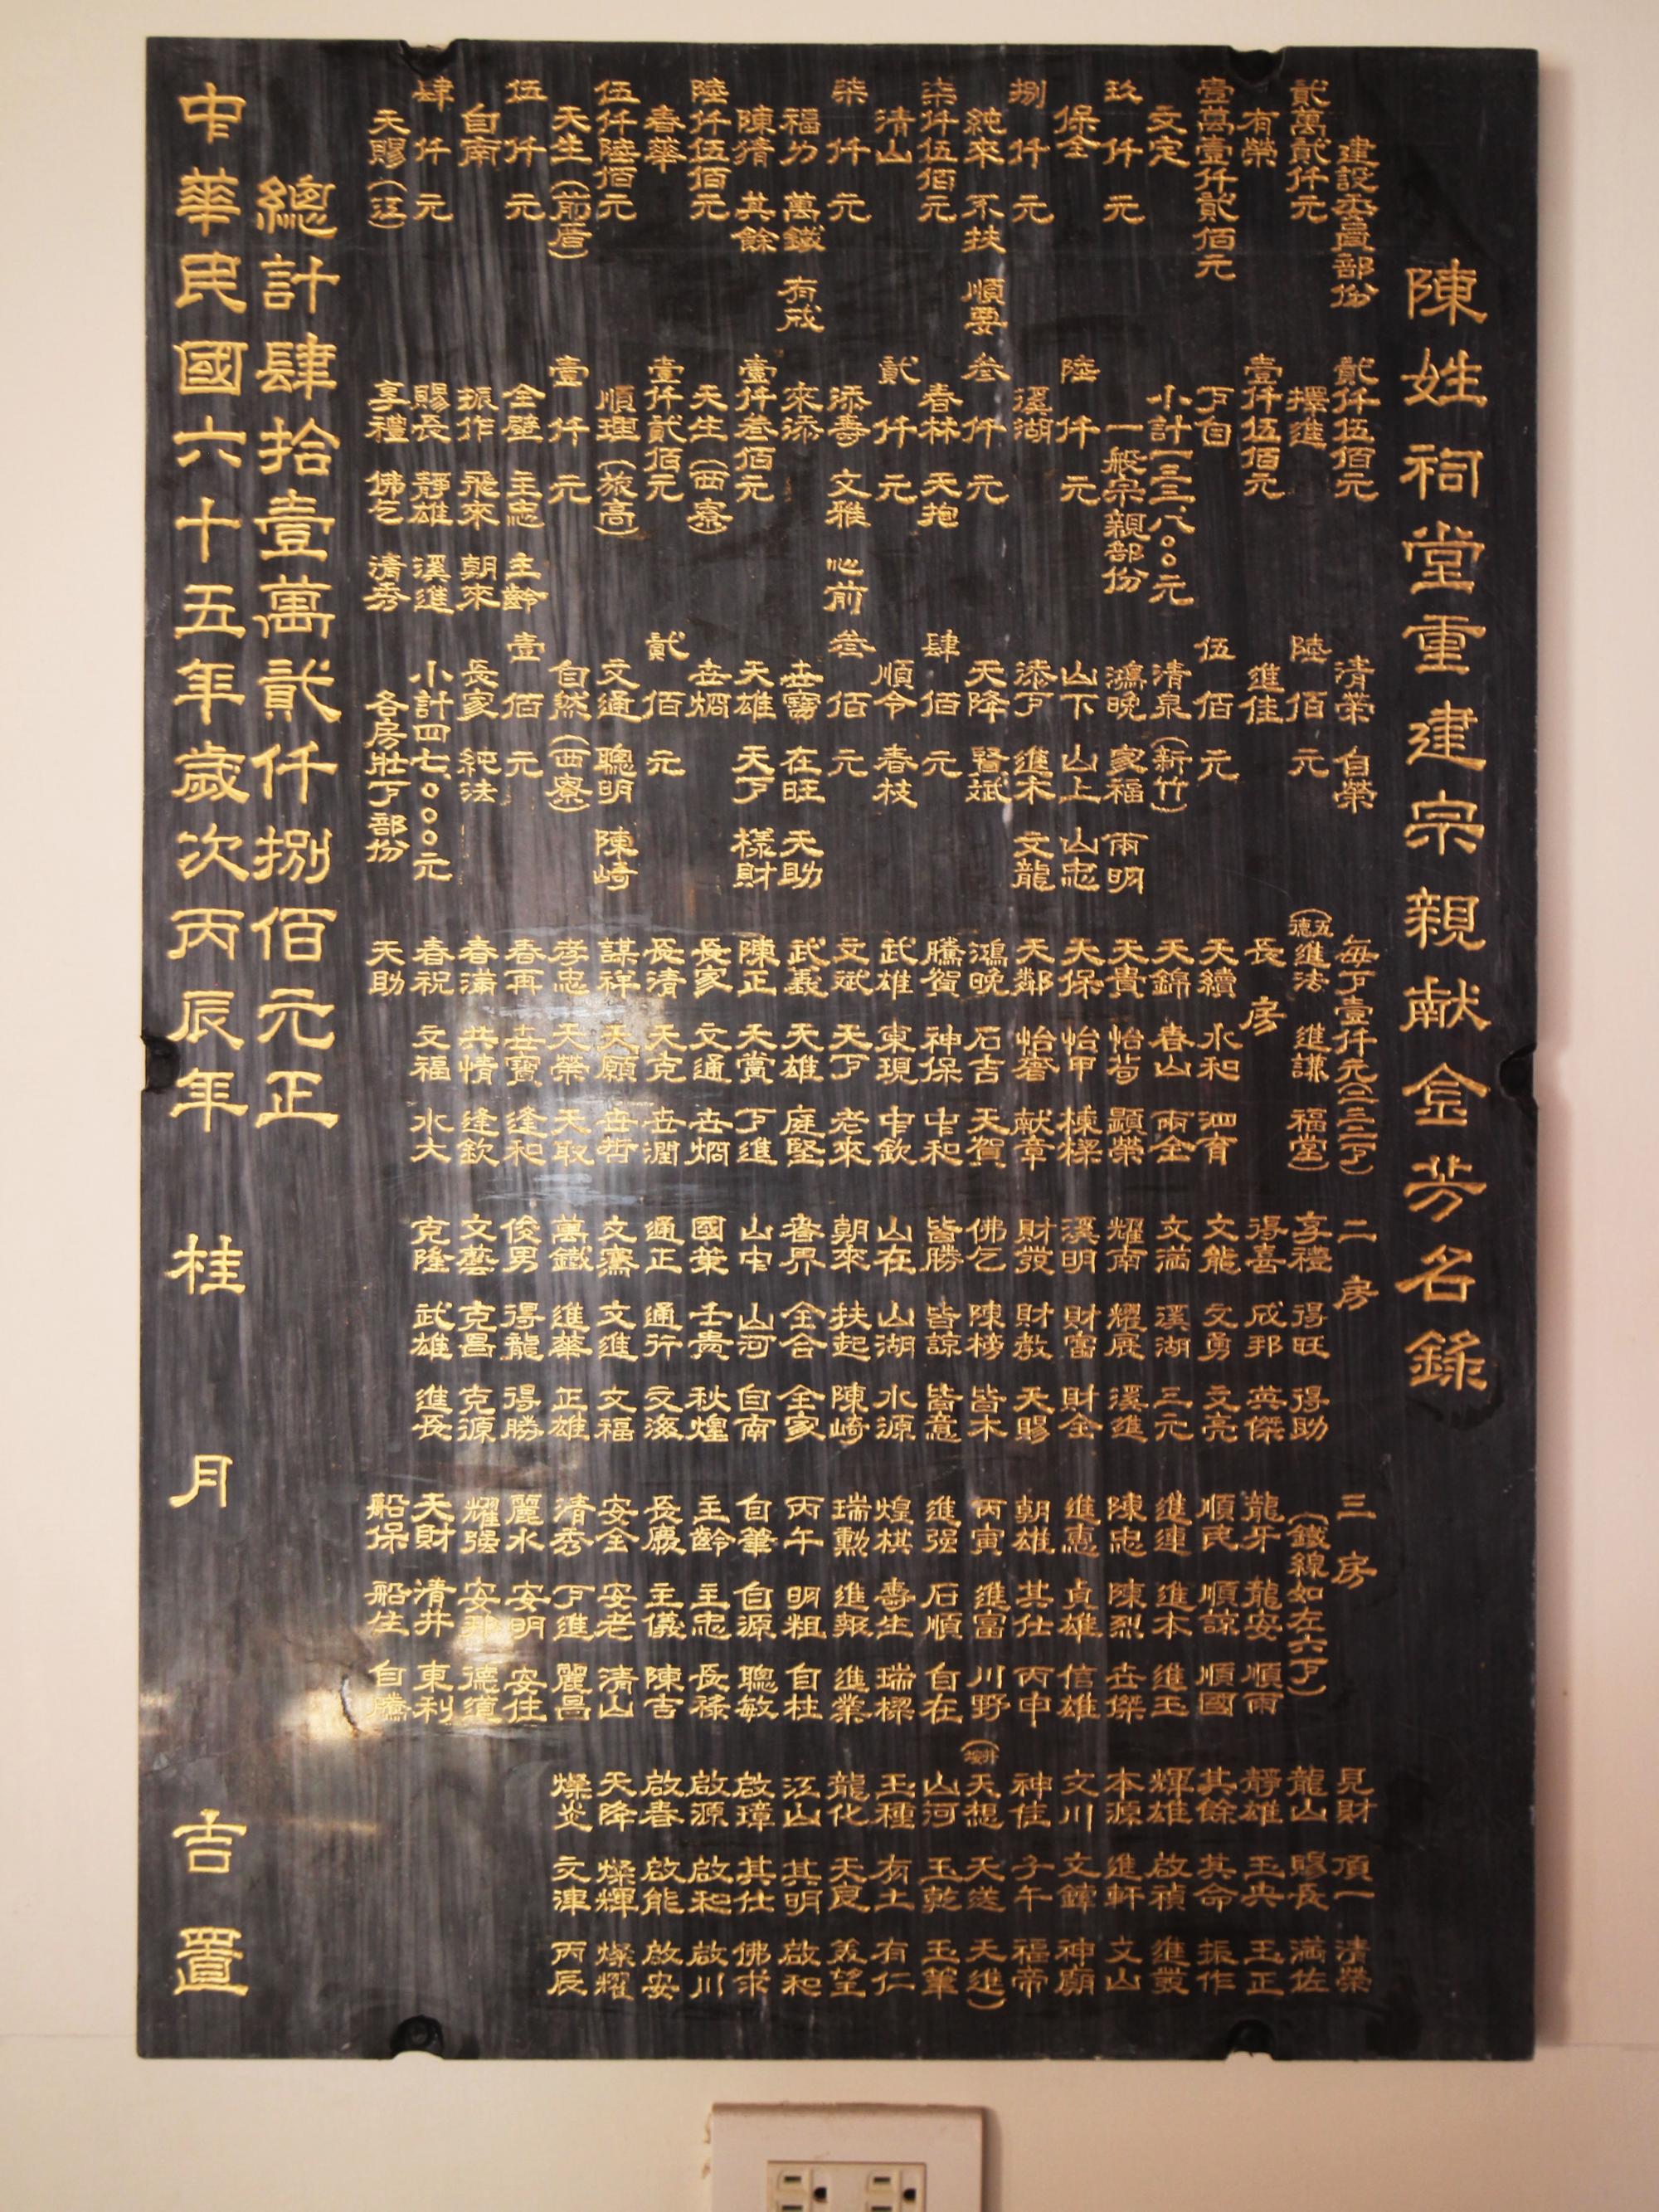 陳姓祠堂重建宗親献金芳名錄
建設委員部份
貳萬貳仟元
有榮
壹萬壹仟貳佰元
文定
玖仟元
保全
捌仟元
純來 不扶 順要
柒仟伍佰元
清山
柒仟元
福力 萬鐵 有成
陳猜 其餘
陸仟伍佰元
春華
伍仟陸佰元
天生(前厝)
伍仟元
自南
肆仟元
天賜(江)
貳仟伍佰元
擇進
壹仟伍佰元
丁自
小計一三三、八〇〇元
一般宗親部份
陸仟元
溪湖
叁仟元
春林 天抱
貳仟元
添壽 文雅 心前
來添
壹仟叁佰元
天生(西寮)
壹仟貳佰元
順理(旅高)
壹仟元
全壁 主忠 主齡
振作 飛來 朝來
賜長 靜雄 溪進
享禮 佛乞 清秀
清榮 自榮
陸佰元
進佳
伍佰元
清泉(新竹)
鴻晚 家福 雨明
山下 山上 山忠
添丁 進來 文龍
天降 賢斌
肆佰元
順令 春枝
叁佰元
世寶 在旺 天助
天雄 天丁 樣財
世炳
貳佰元
文通 聰明 陳崎
自然(西寮)
壹佰元
長家 純法
小計四七、〇〇〇元
各房壯丁部份
每丁壹仟元(二三二丁)
(五德 進法 進謙 福堂)
長房
天續 水和 泗育
天錦 春山 雨全
天貴 怡苟 顯榮
天保 怡甲 棟樑
天鄰 怡番 献章
鴻晚 石吉 天賀
騰賀 神保 中和
武雄 東現 中欽
文斌 天丁 老來
武義 天雄 庭堅
陳正 天賞 丁進
長家 文通 世炳
長清 天克 世潤
謀祥 天願 世哲
孝忠 天榮 天取
春再 世寶 逢和
春滿 共情 逢欽
春祝 文福 水大
天助
二房
享禮 得旺 得助
得喜 成邦 英傑
文能 文勇 文亮
文滿 溪湖 三元
耀南 耀展 溪進
溪明 財富 財全
財發 財教 天賜
佛乞 陳榜 皆木
皆勝 皆諒 皆意
山在 山湖 水源
朝來 扶起 陳崎
春界 全合 全家
山中 山河 自南
國策 壬貴 秋煌
通正 通行 文海
文騫 文進 文福
萬鐵 進華 正雄
俊男 得龍 得勝
文藝 克昌 克源
克隆 武雄 進長
三房
(鐵線如左六丁)
龍牙 龍安 順雨
順民 順諒 順國
進連 進本 進玉
陳忠 陳烈 世傑
進惠 貞雄 信雄
朝雄 其仕 丙申
丙寅 進富 川野
進强 石順 自在
煌棋 壽生 瑞樑
瑞勳 進報 進業
丙午 明粗 自柱
自筆 自源 聰敏
主齡 主忠 長祿
長慶 主儀 陳吉
安全 安老 清山
清秀 丁進 麗昌
麗水 安明 安住
耀强 安那 德道
天財 清井 東利
船保 船生 自騰
見財 頂一 清榮
龍山 賜長 滿佐
靜雄 玉央 玉正
其餘 其命 振作
輝雄 啟禎 進叢
本源 進軒 文山
文川 文鐘 神廟
神佳 子午 福帝
天想 天送 天進)
山河 玉乾 玉筆
玉種 有土 有仁
龍化 天良 羨望
江山 其明 啟和
啟璋 其仕 佛求
啟源 啟和 啟川
啟春 啟能 啟安
天降 燦輝 燦耀
燦炎 文津 丙辰
總計肆拾壹萬貳仟捌佰元正
中華民國六十五年歲次丙辰年 桂月 吉置